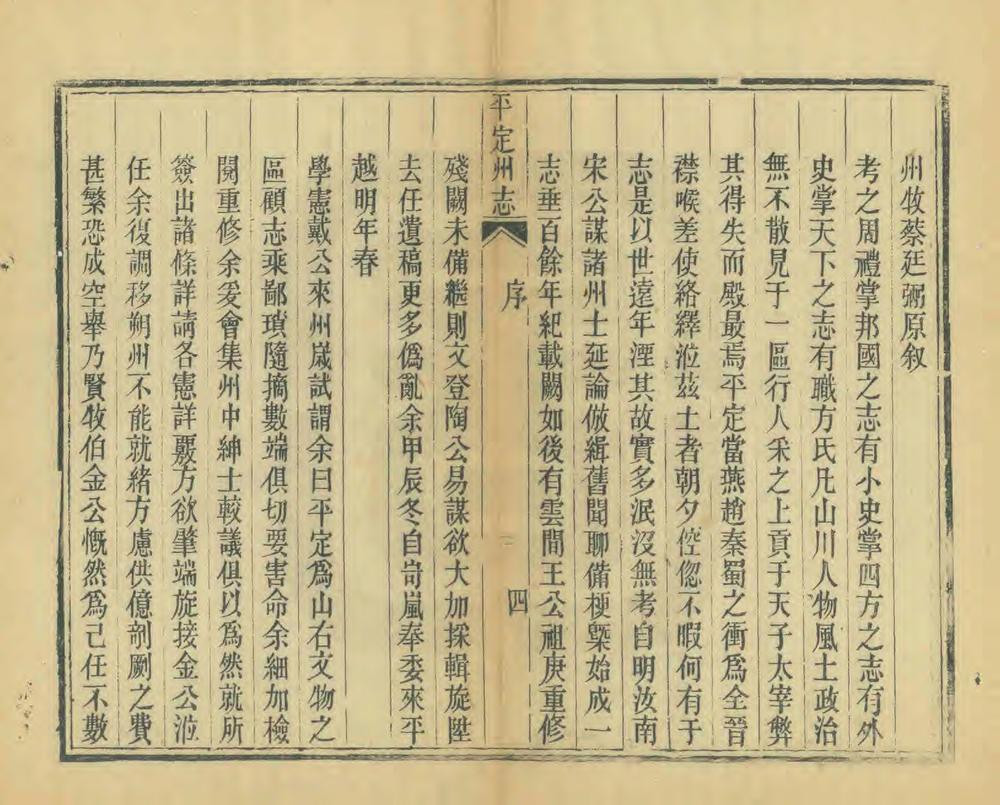 州牧蔡廷弼原叙
考之周禮掌邦國之志有小史掌四方之志有外
史掌天下之志有職方氏凡山川人物風土政治
無不散見于一區行人采之上貢于天子太宰弊
其得失而殿最焉平定當燕趙秦蜀之衝爲全晉
襟喉差使絡繹涖茲土者朝夕倥偬不暇何有于
志是以世遠年湮其故實多泯沒無考自明汝南
宋公謀諸州士延論倣緝舊聞聊備梗槩始成一
志垂百餘年紀載闕如後有雲間王公祖庚重修
平定州志
序
四
殘闕未備繼則文登陶公易謀欲大加採輯旋陞
去任遺稿更多僞亂余甲辰冬自岢嵐奉委來平
越明年春
學憲戴公來州歲試謂余曰平定爲山右文物之
區顧志乘鄙瑣隨摘數端俱切要害命余細加檢
閱重修余爰會集州中紳士較議俱以爲然就所
簽出諸條詳請各憲詳覈方欲肇端旋接金公涖
任余復調移朔州不能就緒方慮供億剞劂之費
甚繁恐成空舉乃賢牧伯金公慨然爲己任不數